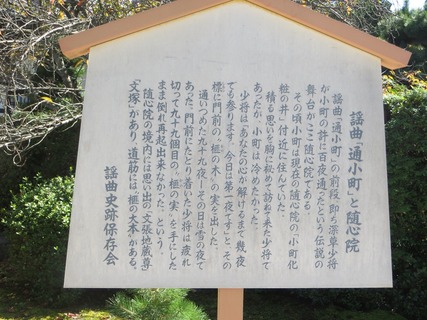 謡曲「通小町」と随心院
謡曲「通小町」の前段、即ち深草少将
が小町の許に百夜通ったという伝説の
舞台がここ随心院である。
その頃小町は現在の随心院の「小町化
粧の井」付近に住んでいた。
積る思いを胸に秘めて訪ねて来た少将で
あったが、小町は冷めたかった。
少将は「あなたの心が解けるまで幾夜
でも参ります。今日は第一夜です」と、その
標に門前の“榧の木”の実を出した。
通いつめた九十九夜―その日は雪の夜で
あった。門前にたどり着いた少将は疲れ
切って九十九個目の“榧の実”を手にした
まま倒れ再起出来なかった、という。
随心院の境内には思い出の「文張地蔵尊」
「文塚」があり、道筋には「榧の大木」がある。
謡曲史跡保存会